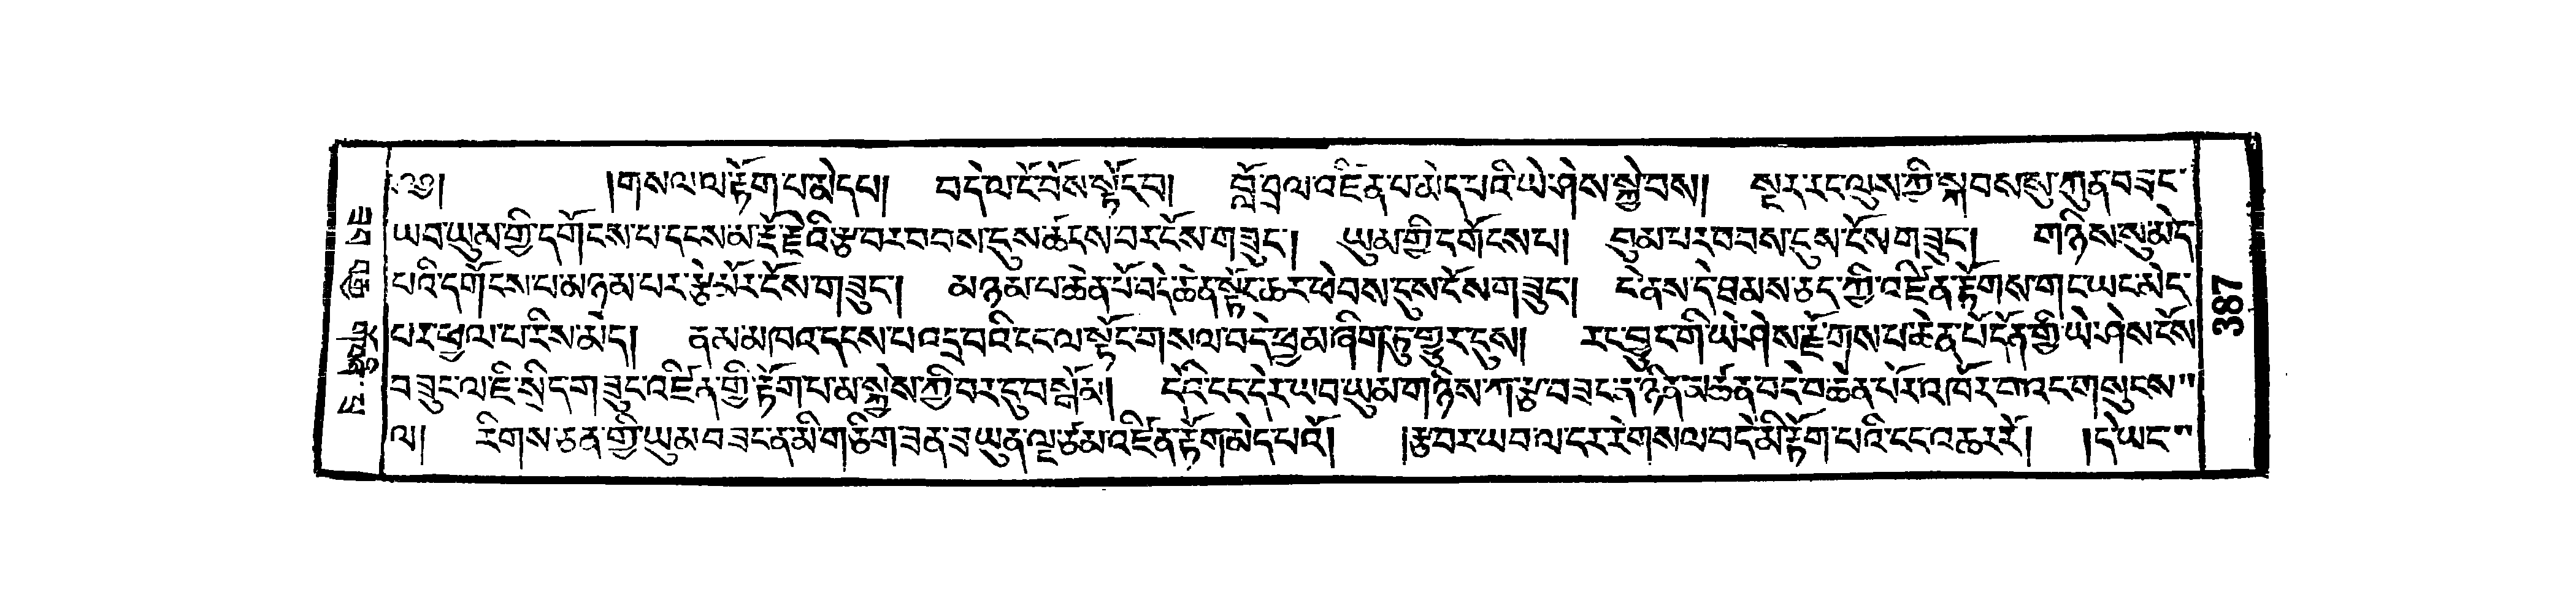 ༄༅། །གསལ་ལ་རྟོག་པ་མེད་པ། བདེ་ལ་ངོ་བོས་སྟོང་བ། བློ་བྲལ་འཛིན་པ་མེད་པའི་ཡེ་ཤེས་སྐྱེ་བས། སྔར་རང་ལུས་ཀྱི་སྐབས་སུ་ཀུན་བཟང་
ཡབ་ཡུམ་གྱི་དགོངས་པ་དངས་མ་རྡོ་རྗེའི་རྩ་བར་བབས་དུས་ཚངས་བར་ངོས་གཟུང་། ཡུམ་གྱི་དགོངས་པ། བུམ་པར་བབས་དུས་ངོས་གཟུང། གཉིས་སུ་མེད་
པའི་དགོངས་པ་མཉམ་པར་རྩེ་ངོས་གཟུང། མཉམ་པ་ཆེན་པོ་བདེ་ཆེན་སྟོང་ཆར་ཕེབས་དུས་ངོས་གཟུང། དེ་ནས་དེ་ཐམས་ཅད་ཀྱི་འཛིན་རྟོགས་གང་ཡང་མེད་
པར་ཕྱལ་པ་རིས་མེད། ནམ་མཁའ་དངས་པ་འདྲ་བའི་ངང་ལ་སྟོང་གསལ་བདེ་ཕྱམ་ཞིག་ཏུ་གྱུར་དུས། རང་བྱུང་གི་ཡེ་ཤེས་རྫོགས་པ་ཆེན་པོ་དོན་གྱི་ཡེ་ཤེས་ངོས་
བཟུང་ལ་ཇི་སྲིད་གཟུང་འཛིན་གྱི་རྟོག་པ་མ་སྐྱེས་ཀྱི་བར་དུ་བསྒོམ། དེའི་ངང་དེར་ཡབ་ཡུམ་གཉིས་ཀ་རྩ་བཟང་ན་ཉིན་མཚན་བདེ་བ་ཆེན་པོར་འཁོར་བའང་གསུངས་
ལ། རིགས་ཅན་གྱི་ཡུམ་བཟང་ན་མི་གཅིག་ཟན་ཟ་ཡུན་ལྟ་ཙམ་འཛིན་རྟོག་མེད་པའོ། །རྩ་བར་ཡབ་ལ་དར་རེ་གསལ་བདེ་མི་རྟོག་པའི་ངང་འཆར་རོ། །དེ་ཡང་
༧༨༣